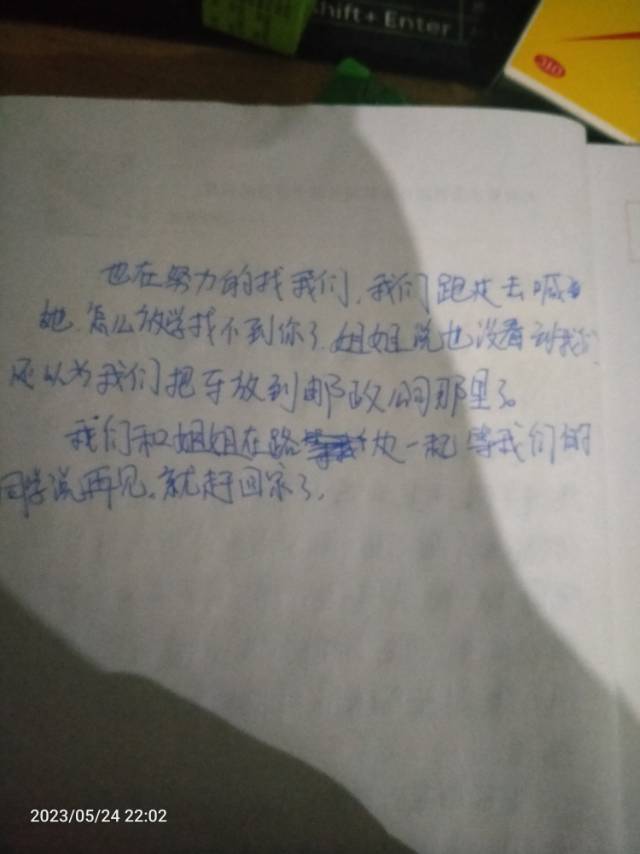 Shift+ Enter
也在努力的找我们,我们跑过去喊
她,怎么放学找不到你了.姐姐说也没看到我们
还以为我们把车放到邮政公司那里了。
我们和姐姐在路边一起等我们的
同学说再见.就赶回家了.
2023/05/24 22:02